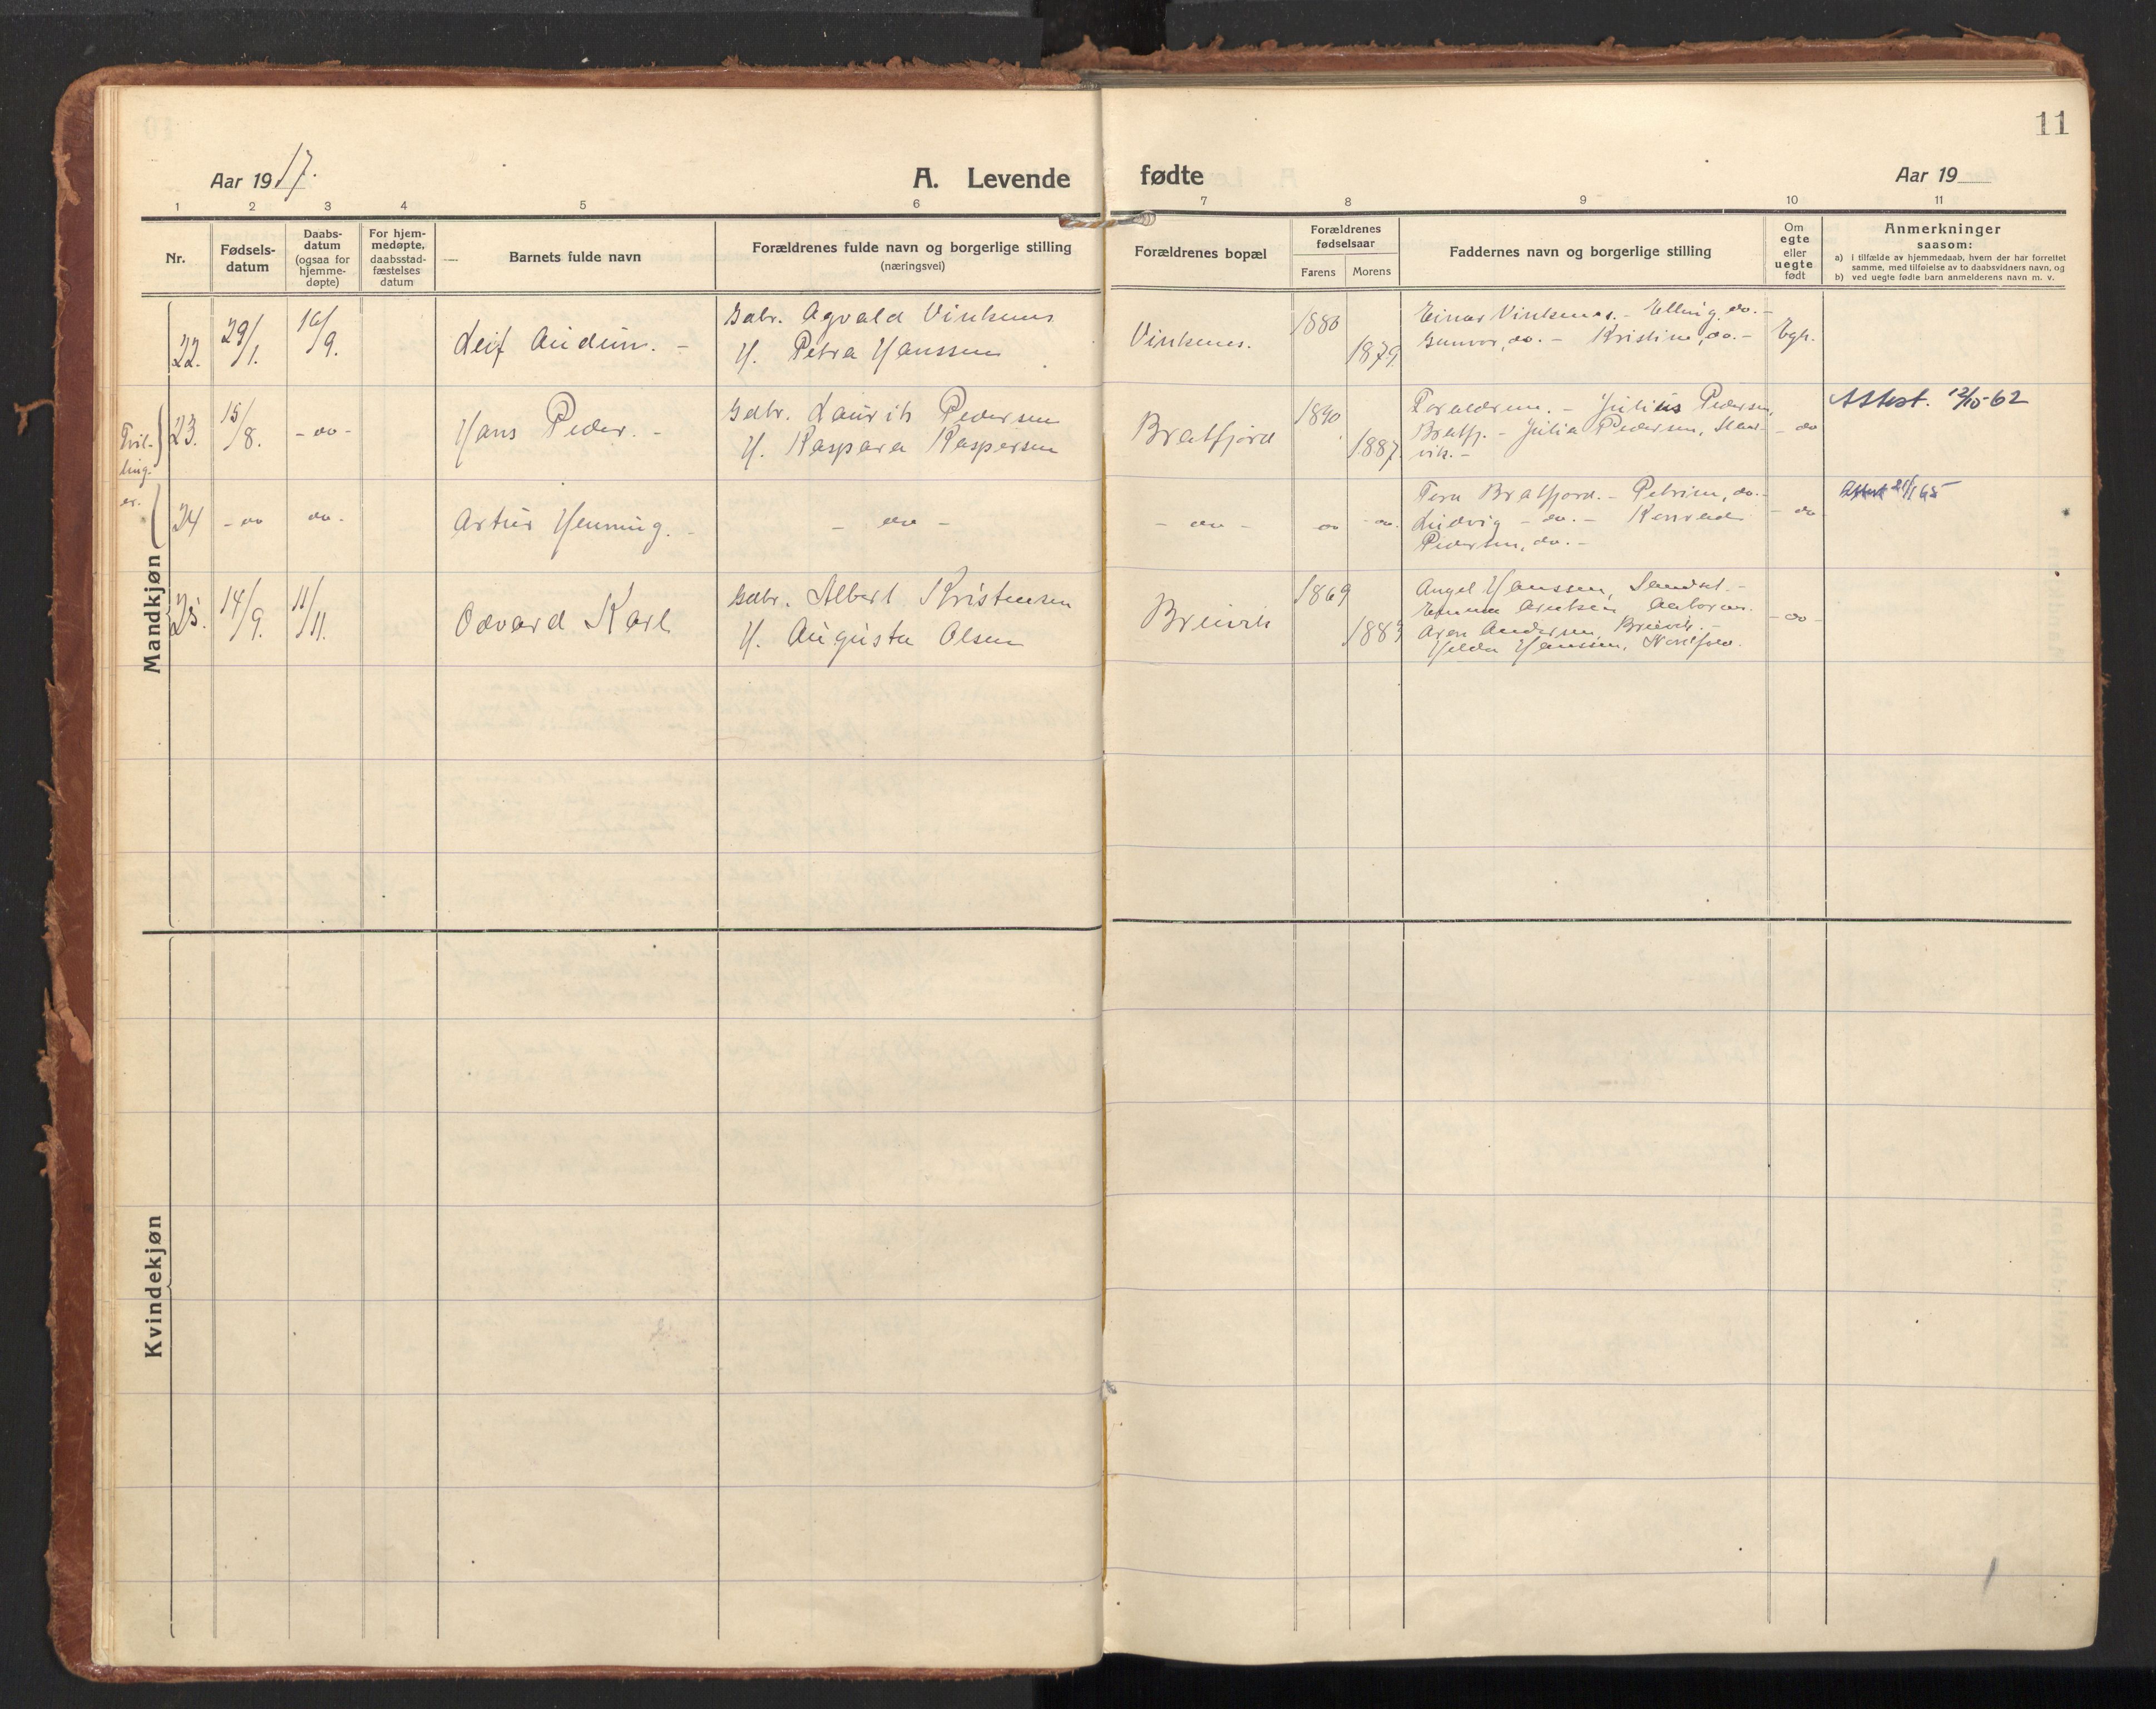 11
Aar 1917.
A. Levende fødte
Aar 19
1 2 3 4 5 6 7 8 9 10 11
Nr.
Fødsels-
datum
Daabs-
datum
(ogsaa for
hjemme-
døpte)
For hjem-
medøpte,
daabsstad-
fæstelses
datum
Barnets fulde navn
Forældrenes fulde navn og borgerlige stilling
(næringsvei)
Forældrenes bopæl
Forældrenes
fødselsaar
Farens Morens
Faddernes navn og borgerlige stilling
Om
egte
eller
uegte
født
Anmerkninger
saasom:
a) i tilfælde av hjemmedaab, hvem der har forrettet
samme, med tilføielse av to daabsvidners navn, og
b) ved uegte fødte barn anmelderens navn m. v.
Mandkjøn
22. 29/1. 16/9. Leif Audun. -
Gdbr. Agvald Vinkenes
H. Petra Hanssen
Vinkenes.
1880
1879.
Einar Vinkenes. - Elling, do. -
Gunvor, do. - Kristine, do. -
Egte.
Tvil-
ling-
er.
23. 15/8. - do - Hans Peder. -
Gdbr. Laurits Pedersen
H. Kaspara Kaspersen
Bratfjord
1890
1887.
Forældrene. - Julius Pedersen,
Bratfj. - Julia Pedersen,
vik. -
- do
Attest. 12/10-62
24 - do do - Artur Henning. -
- do -
- do -
do - do.
Bratfjord. - Petrine, do. -
Ludvig - do. - Konrad
Pedersen, do. -
- do
Attest 21/1 65
25. 14/9. 11/11. Odvard Karl
Gdbr. Albert Kristensen
H. Augusta Olsen
Breivik
1869
1883
Angel Hanssen, Sandset. -
Emma Arntsen,
Andersen, Breivik. -
Helda Hanssen, Nordfold.
- do -
Kvindekjøn